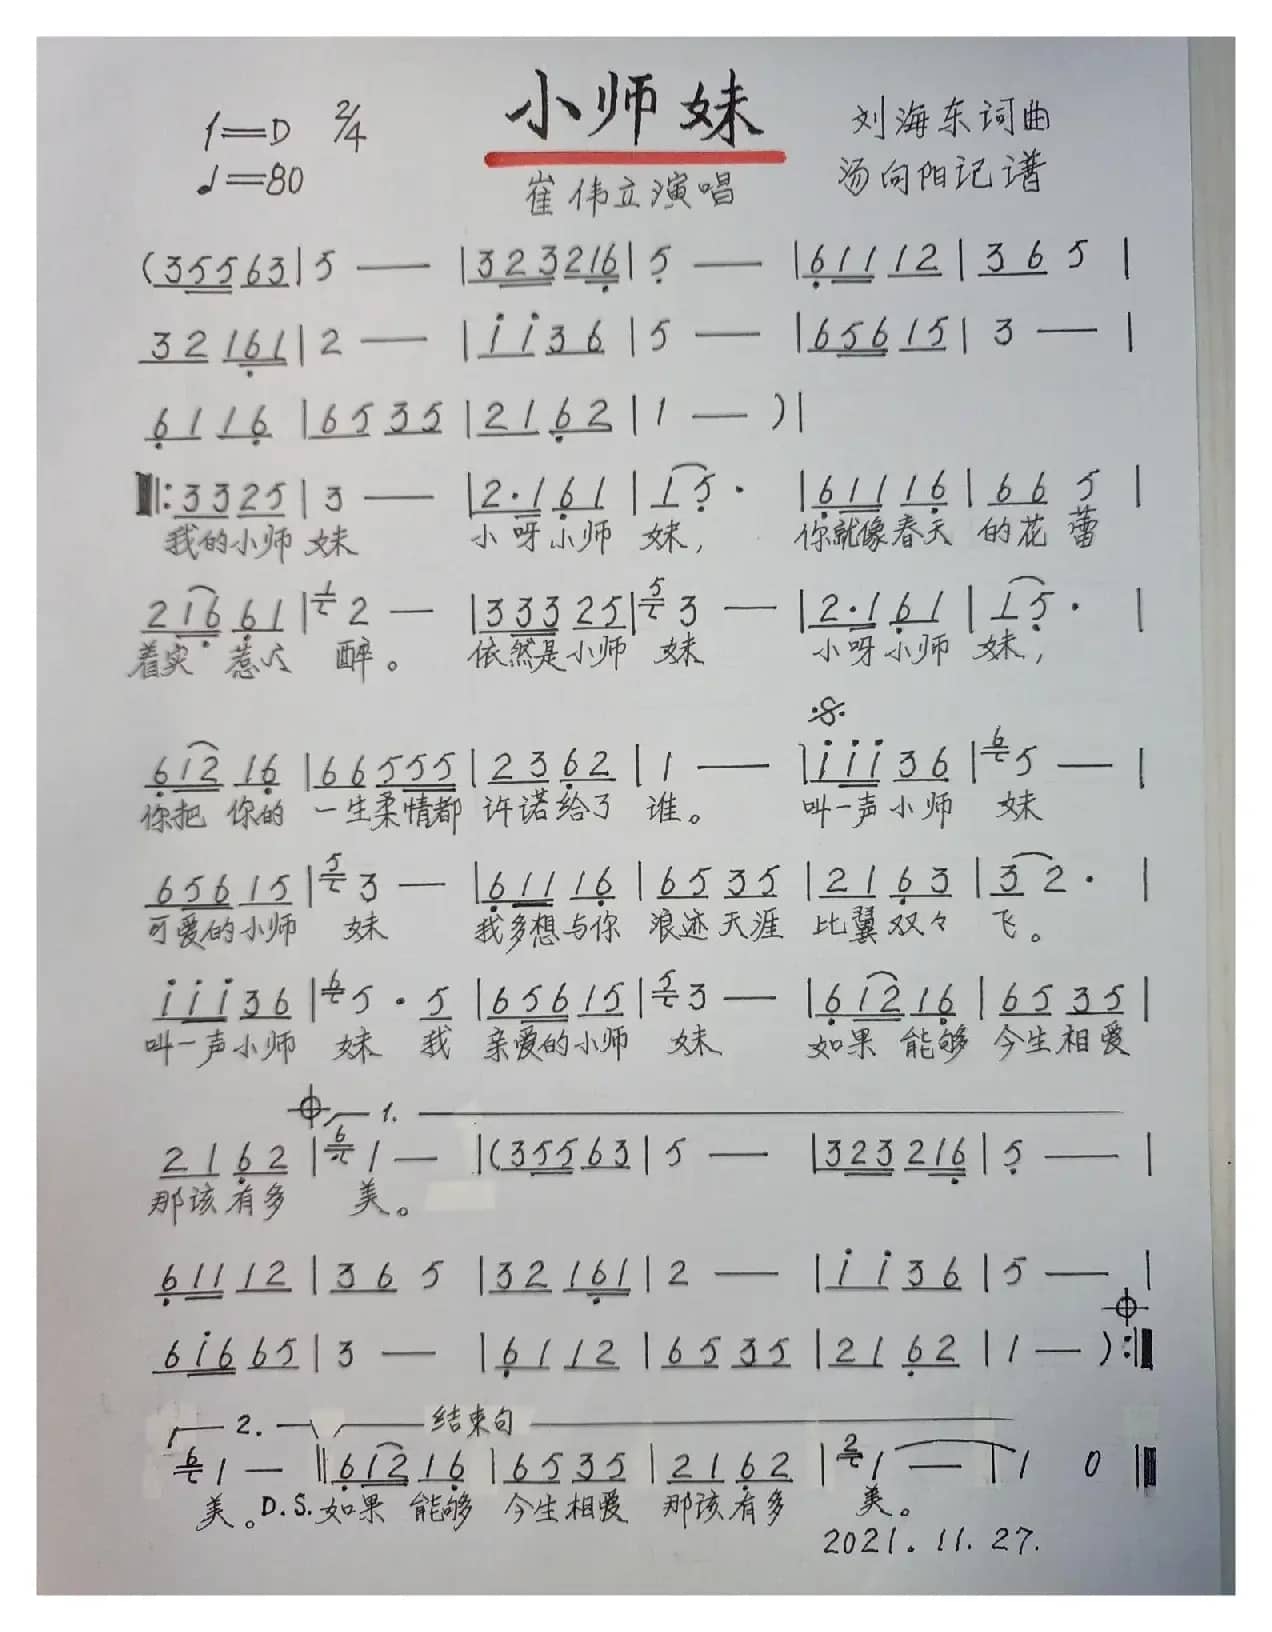 小师妹
1=D 2/4
刘海东词曲
♩=80
崔伟立演唱
汤向阳记谱
(35563|5 — |323216|5 — |61112|365|
32161|2 — |i i36|5 — |65615|3 — |
6116|6535|2162|1 — )|
‖:3325|3 — |2·161|15·|61116|665|
我的小师妹 小呀小师妹, 你就像春天的花蕾
21661|1 2 — |33325|5 3 — |2·161|15·|
着实惹人醉。 依然是小师妹 小呀小师妹,
𝄋
61216|66555|2362|1 — |iii36|6 5 — |
你把你的一生柔情都许诺给了谁。 叫一声小师妹
65615|5 3 — |61116|6535|2163|32·|
可爱的小师妹 我多想与你浪迹天涯比翼双々飞。
iii36|6 5·5|65615|5 3 — |61216|6535|
叫一声小师妹 我亲爱的小师妹 如果能够今生相爱
𝄌 1.
2162|6 1 — |(35563|5 — |323216|5 — |
那该有多美。
61112|365|32161|2 — |i i36|5 — |
𝄌
6i665|3 — |6112|6535|2162|1 — ):‖
2. 结束句
6 1 — ‖61216|6535|2162|2 1 — |1 0‖
美。D.S.如果能够今生相爱那该有多美。
2021.11.27.